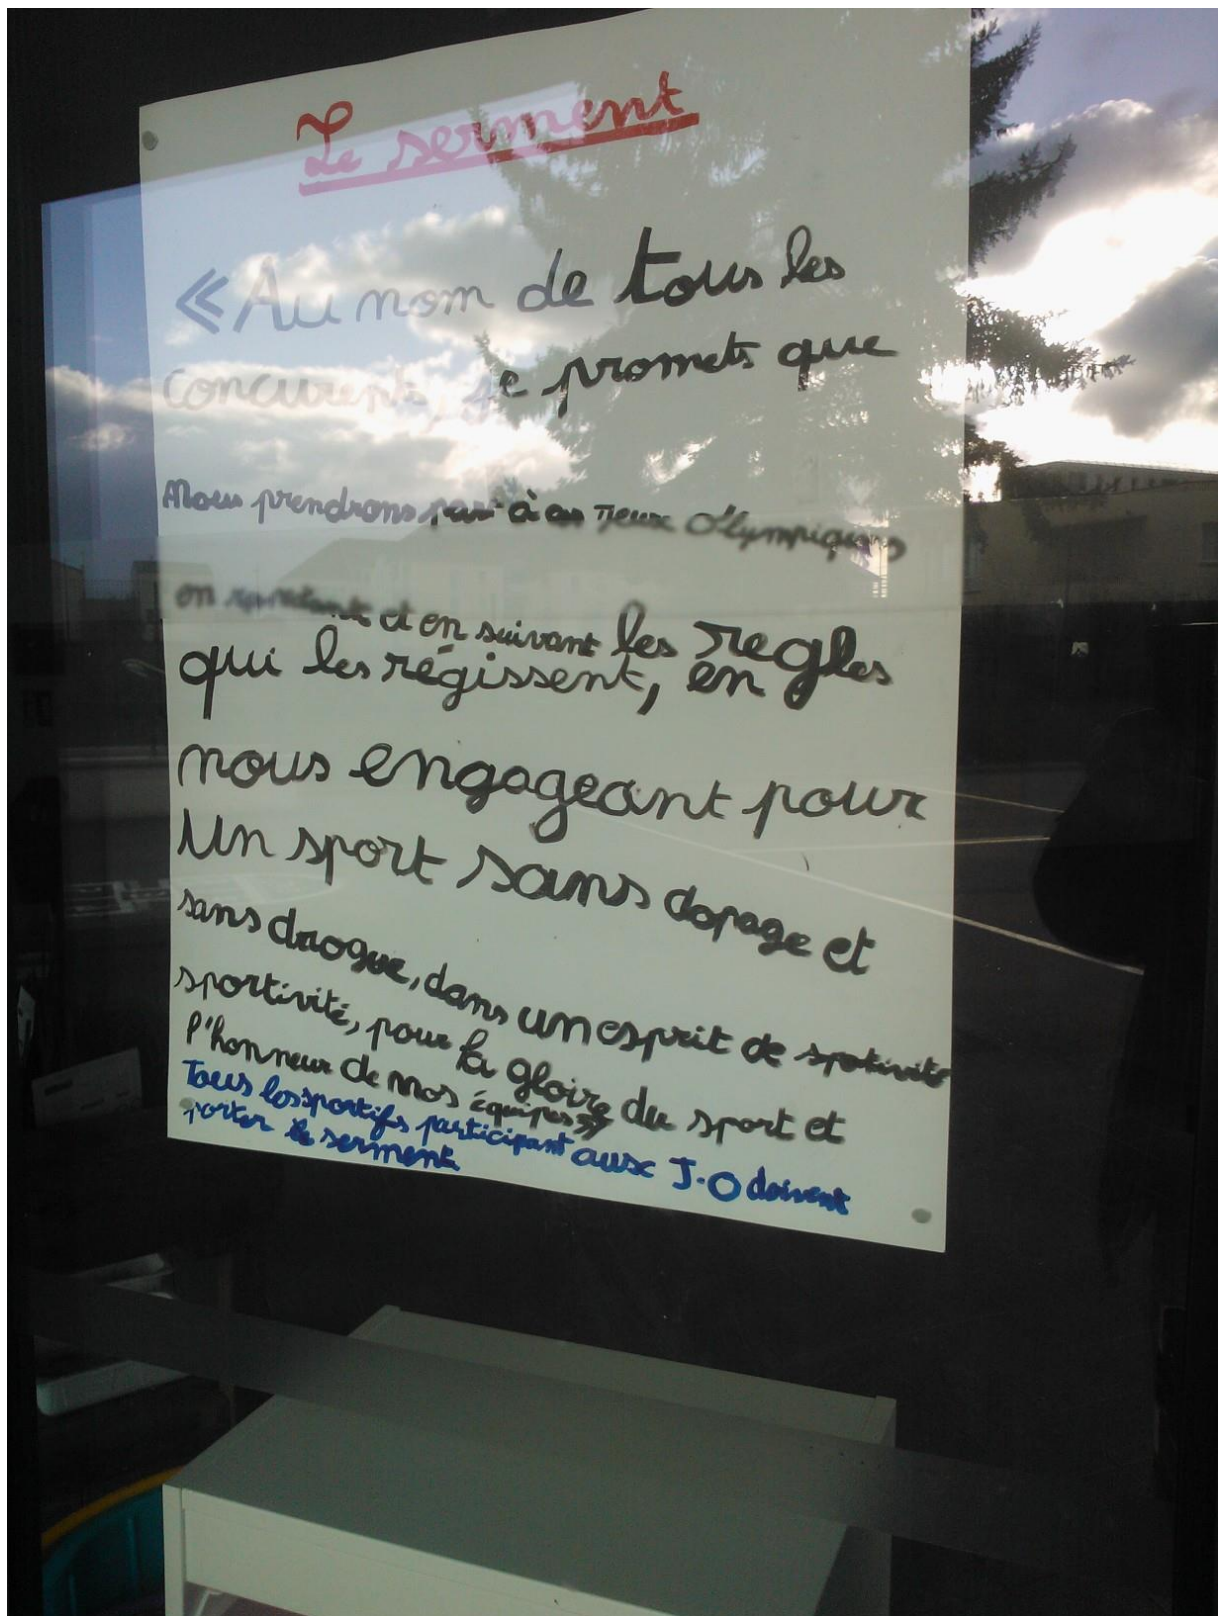 Le serment
« Au nom de tous les
concurents, je promets que
Nous prendrons part à ces Jeux Olympiques
en et en suivant les regles
qui les régissent, en
nous engageant pour
Un sport sans dopage et
sans drogue, dans un esprit de spotivité
sportivité, pour la gloire du sport et
l'honneur de nos équipes »
Tous les sportifs participant aux J.O doivent
porter le serment